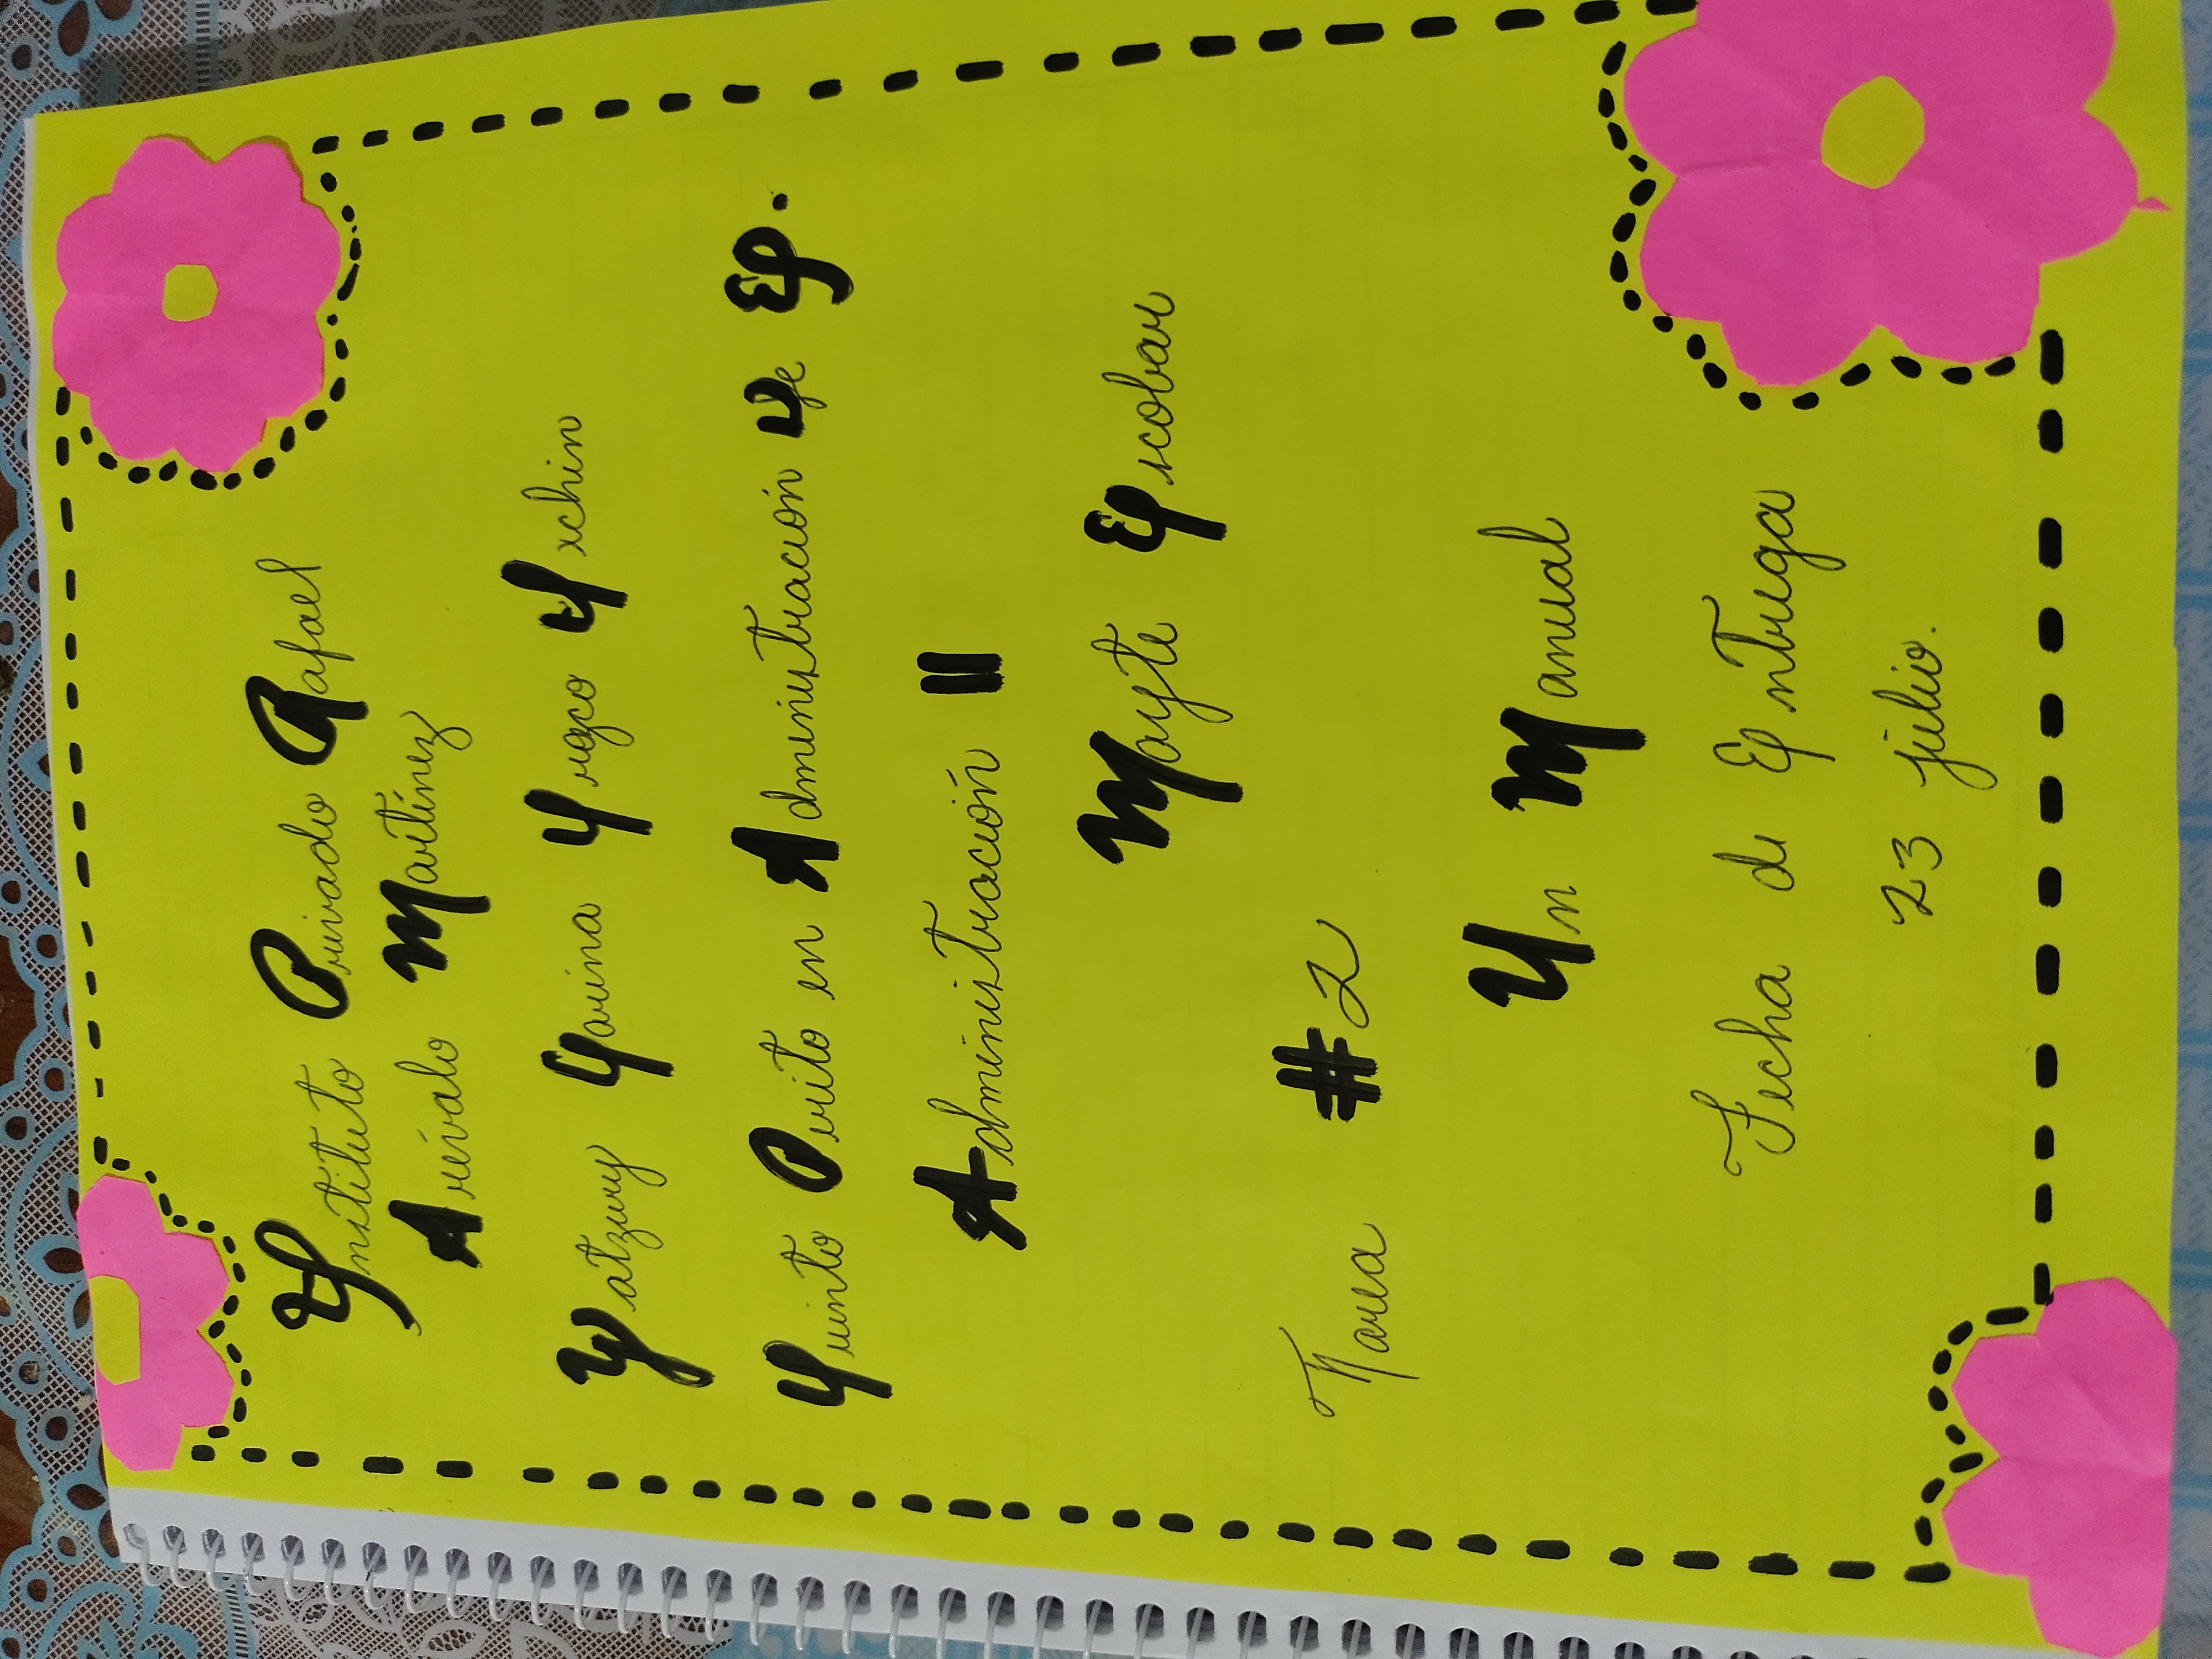 Instituto Privado Rafael
Arévalo Martínez
Yatzury
Quinto Perito en Administración de E.
Administración II
Mayte Escobar
Tarea # 2
Un Manual
Fecha de Entrega
23 julio.